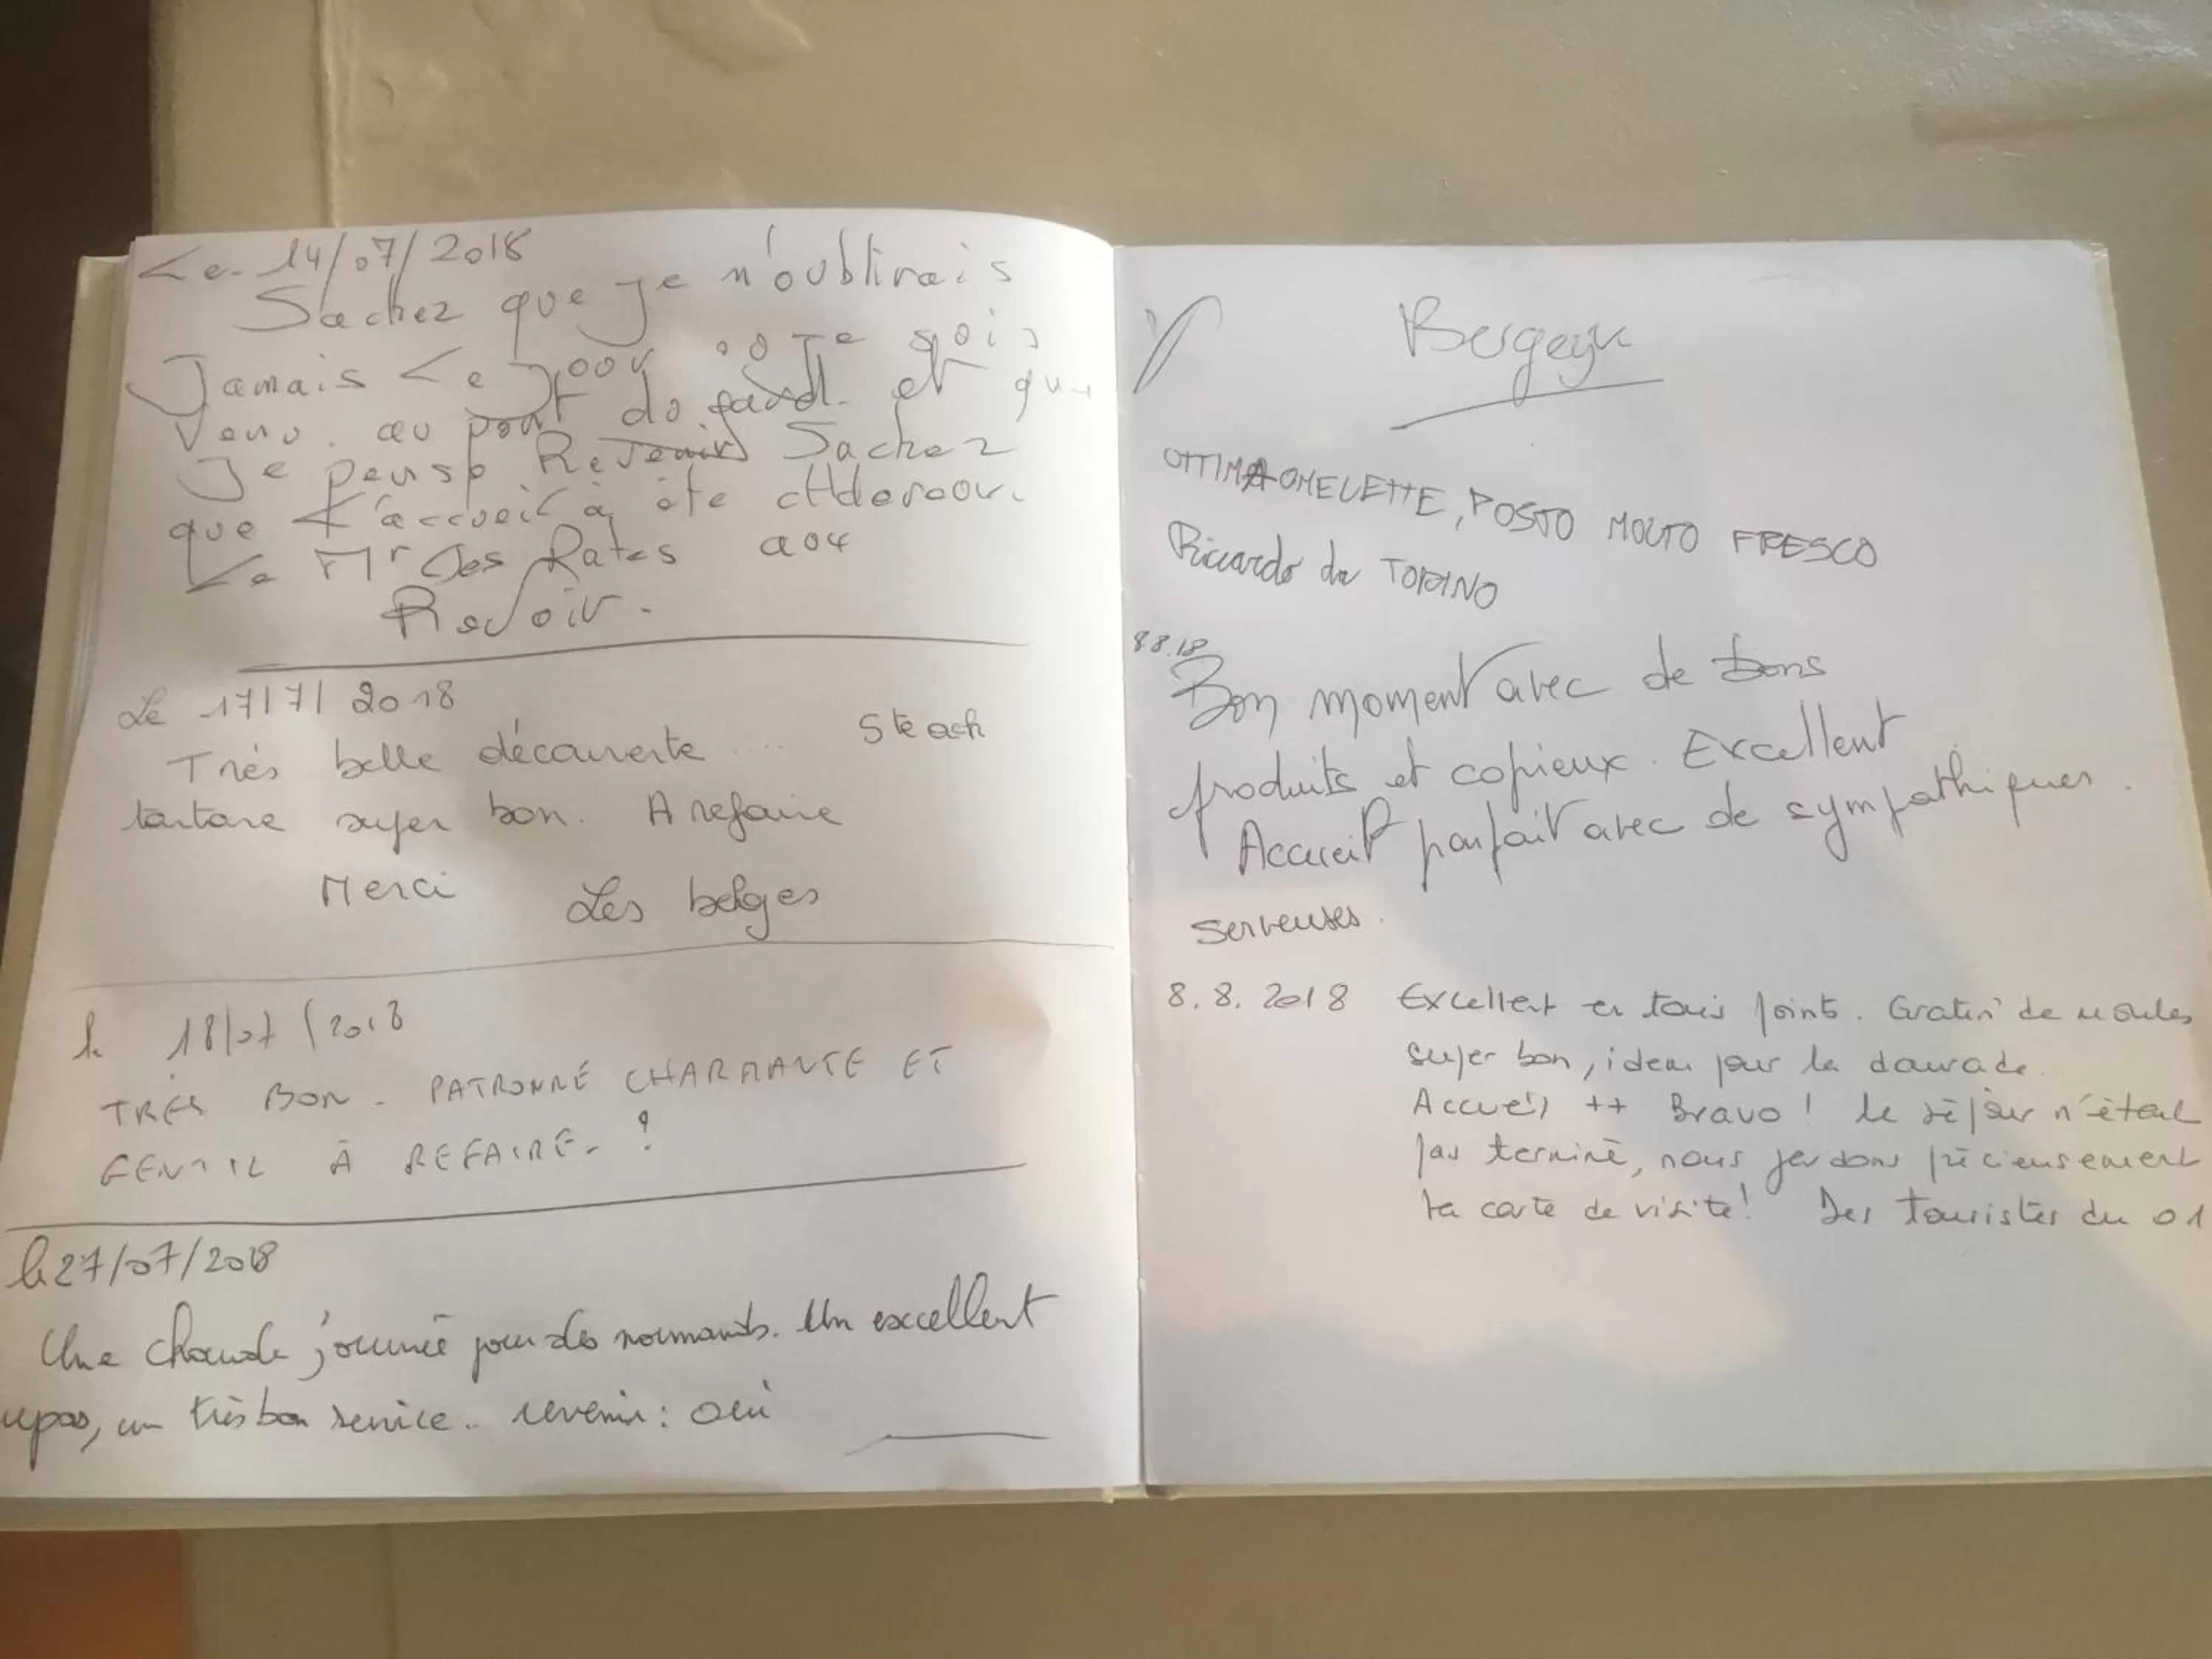 Le 14/07/2018
Sachez que je n'oublirais
Jamais Le Jour où Je sois
venu. au pont du gard. et que
Je pense Revenir Sachez
que L'accueil à été
Le Mr des Pates aou
Revoir.
Le 17/7/2018
Très belle découverte .... Steack
tartare super bon. A refaire
Merci Les belges
le 18/07/2018
TRES BON. PATRONNE CHARMANTE ET
GENTIL À REFAIRE. !
le 27/07/2018
Une chaude journée pour des normands. Un excellent
repas, un très bon service.. revenir: oui
OTTIMA OMELETTE, POSTO MOLTO FRESCO
Riccardo da TORINO
8.8.18
Bon moment avec de bons
produits et copieux. Excellent
Accueil parfait avec de sympathiques.
serveuses.
8.8.2018 Excellent en tous points. Gratin de moules
super bon, idem pour la daurade.
Accueil ++ Bravo! Le séjour n'était
pas terminé, nous gardons précieusement
la carte de visite! Des touristes du 01